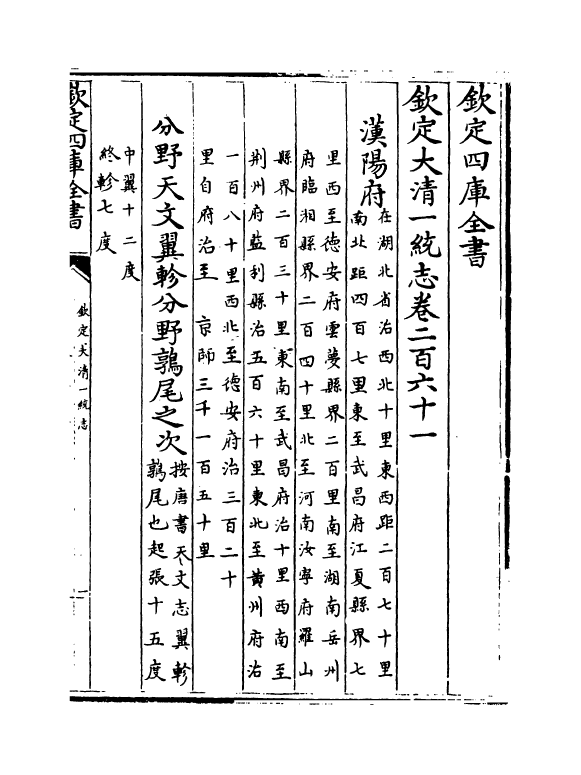 欽定四庫全書
欽定大清一統志卷二百六十一
漢陽府
在湖北省治西北十里東西距二百七十里
南北距四百七里東至武昌府江夏縣界七
里西至徳安府雲夢縣界二百里南至湖南岳州
府臨湘縣界二百四十里北至河南汝寧府羅山
縣界二百三十里東南至武昌府治十里西南至
荆州府監利縣治五百六十里東北至黄州府治
一百八十里西北至徳安府治三百二十
里自府治至 京師三千一百五十里
分野天文翼軫分野鶉尾之次
按唐書天文志翼軫
鶉尾也起張十五度
中翼十二度
終軫七度
欽定四庫全書
欽定大清一統志